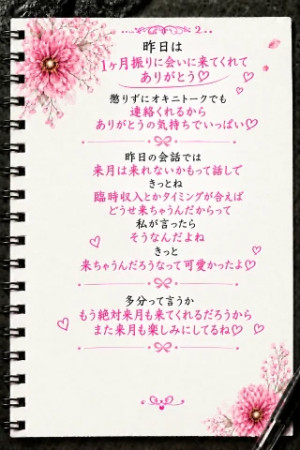 2
昨日は
1ヶ月振りに会いに来てくれて
ありがとう♡
懲りずにオキニトークでも
連絡くれるから
ありがとうの気持ちでいっぱい♡
昨日の会話では
来月は来れないかもって話しで
きっとね
臨時収入とかタイミングが合えば
どうせ来ちゃうんだからって
私が言ったら
そうなんだよね
きっと
来ちゃうんだろうなって可愛かったよ♡
多分って言うか
もう絶対来月も来てくれるだろうから
また来月も楽しみにしてるね♡